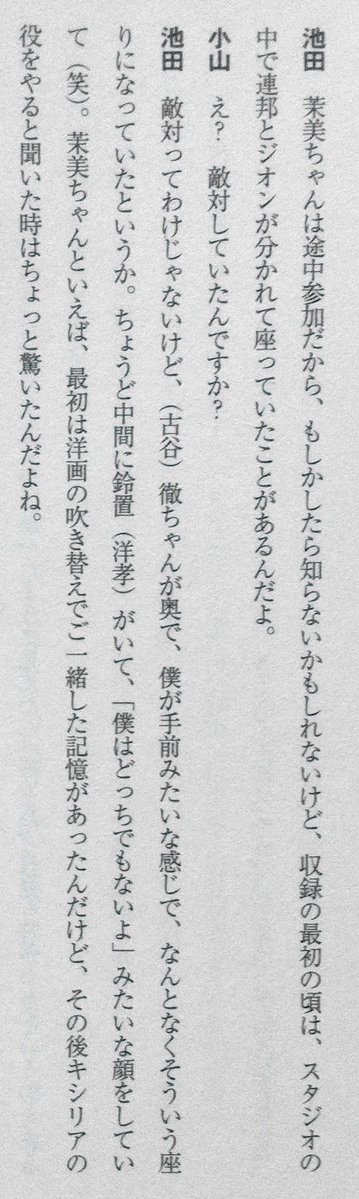 池田　茉美ちゃんは途中参加だから、もしかしたら知らないかもしれないけど、収録の最初の頃は、スタジオの
中で連邦とジオンが分かれて座っていたことがあるんだよ。
小山　え？　敵対していたんですか？
池田　敵対ってわけじゃないけど、（古谷）徹ちゃんが奥で、僕が手前みたいな感じで、なんとなくそういう座
りになっていたというか。ちょうど中間に鈴置（洋孝）がいて、「僕はどっちでもないよ」みたいな顔をしてい
て（笑）。茉美ちゃんといえば、最初は洋画の吹き替えでご一緒した記憶があったんだけど、その後キシリアの
役をやると聞いた時はちょっと驚いたんだよね。